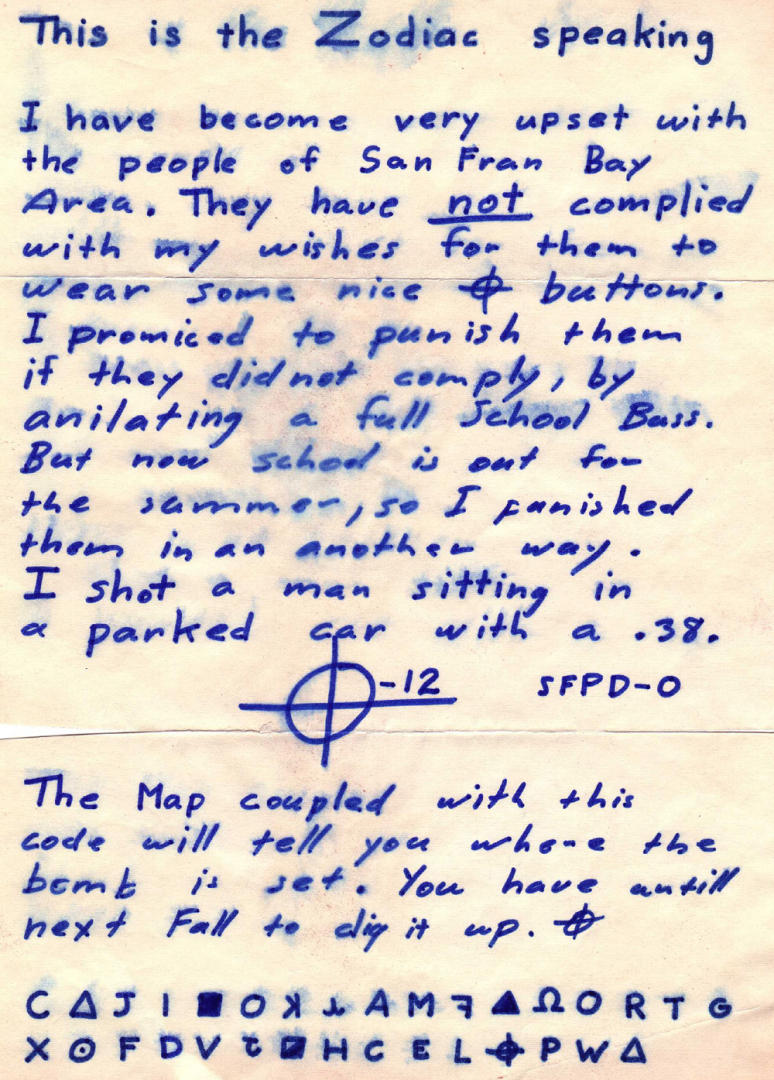 This is the Zodiac speaking
I have become very upset with
the people of San Fran Bay
Area. They have not complied
with my wishes for them to
wear some nice ⌖ buttons.
I promiced to punish them
if they did not comply, by
anilating a full School Buss.
But now school is out for
the summer, so I punished
them in an another way.
I shot a man sitting in
a parked car with a .38.
⌖-12 SFPD-0
The Map coupled with this
code will tell you where the
bomb is set. You have untill
next Fall to dig it up. ⌖
C Δ J I ■ O ꓘ ⅄ A M ꟻ ▲ Ω O R T G
X ⊙ F D V Ɩ ◪ H C E L ⌖ P W Δ